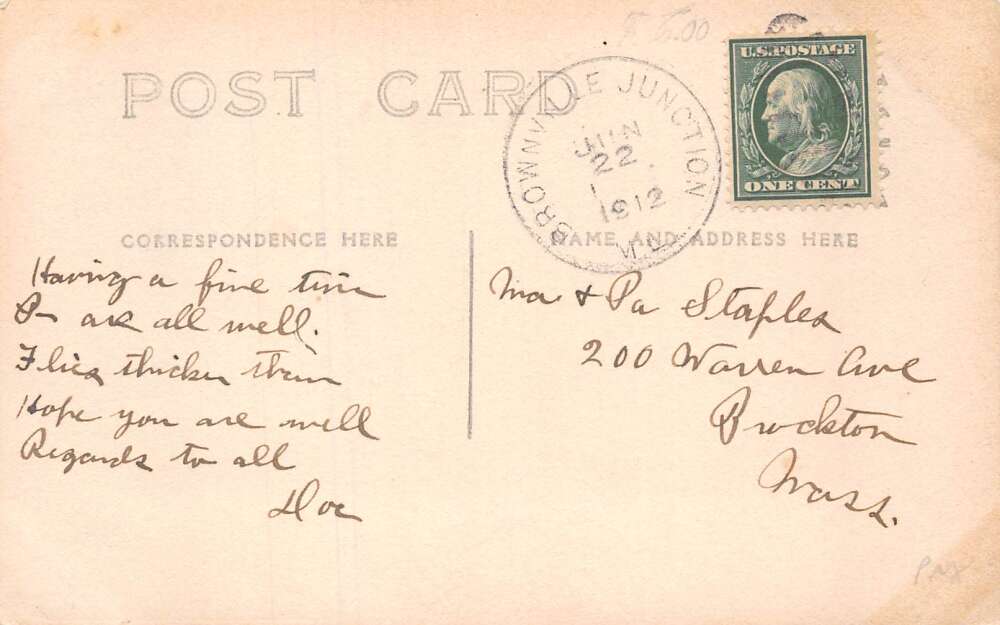 F 6.00
POST CARD
BROWNVILLE JUNCTION
JUN
22
1912
ME.
U.S. POSTAGE
ONE CENT
CORRESPONDENCE HERE
NAME AND ADDRESS HERE
Having a fine time
are all well.
Flies thicker than
Hope you are well
Regards to all
Doc
Ma & Pa Staples
200 Warren Ave
Brockton
Mass.